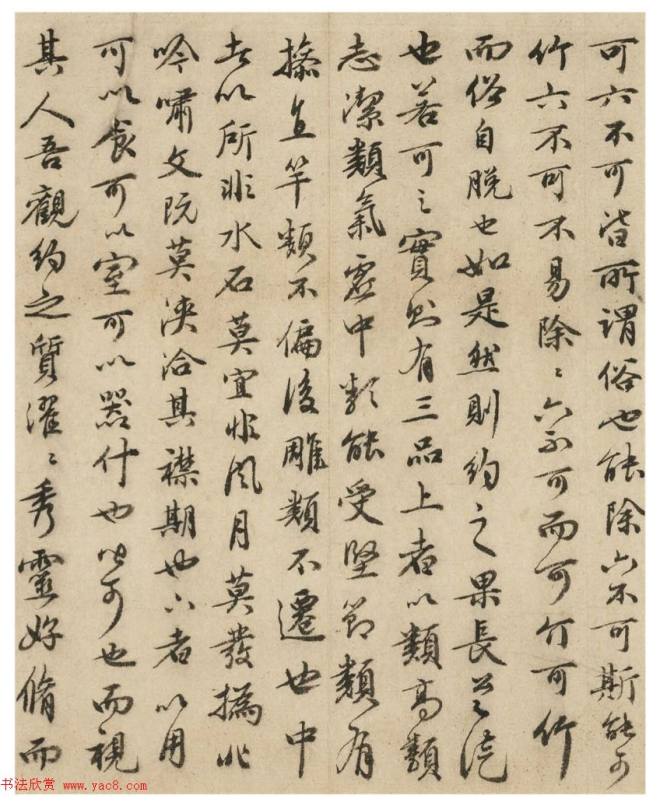 可六不可皆所謂俗也能除六不可斯能可
竹六不可不易除〻六不可而可竹可竹
而俗自脫也如是然則約之果長
也若可之實則有三品上者以類高類
志潔類氣虛中類能受堅節類有
操直竿類不偏後雕類不遷也中
者以所非水石莫宜非風月莫發撝非
吟嘯文阮莫浹洽其襟期也下者以用
可以食可以室可以器什也皆可也而視
其人吾觀約之質濯〻秀靈好脩而
书法欣赏 www.yac8.com